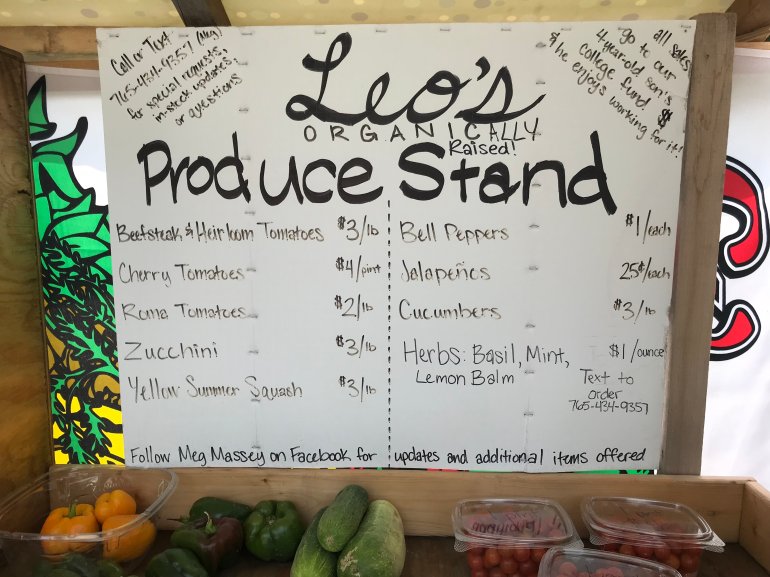 Call or Text
765-434-9357 (Meg)
for special requests,
in-stock updates,
or questions
all sales
go to our
4-year-old son's
college fund!
& he enjoys working for it!
Leo's
ORGANICALLY
Raised!
Produce Stand
Beefsteak & Heirloom Tomatoes $3/lb
Cherry Tomatoes $4/pint
Roma Tomatoes $2/lb
Zucchini $3/lb
Yellow Summer Squash $3/lb
Bell Peppers $1/each
Jalapeños 25¢/each
Cucumbers $3/lb
Herbs: Basil, Mint, $1/ounce
Lemon Balm
Text to
order
765-434-9357
Follow Meg Massey on Facebook for updates and additional items offered